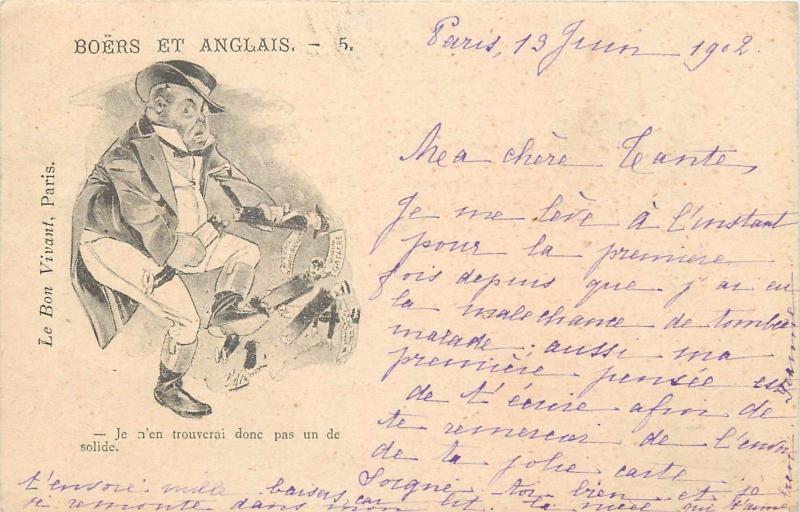 BOËRS ET ANGLAIS. – 5.
Le Bon Vivant, Paris.
— Je n'en trouverai donc pas un de
solide.
Paris, 13 Juin 1902.
Ma chère Tante,
Je me lève à l'instant
pour la première
fois depuis que j'ai eu
la malechance de tomber
malade; aussi ma
première pensée est
de t'écrire afin de
te remercier de l'envoi
de la jolie carte.
Soigne-toi bien et je
t'envoie mille baisers car
je remonte dans mon lit. Ta nièce qui t'aime
bien Jeanne